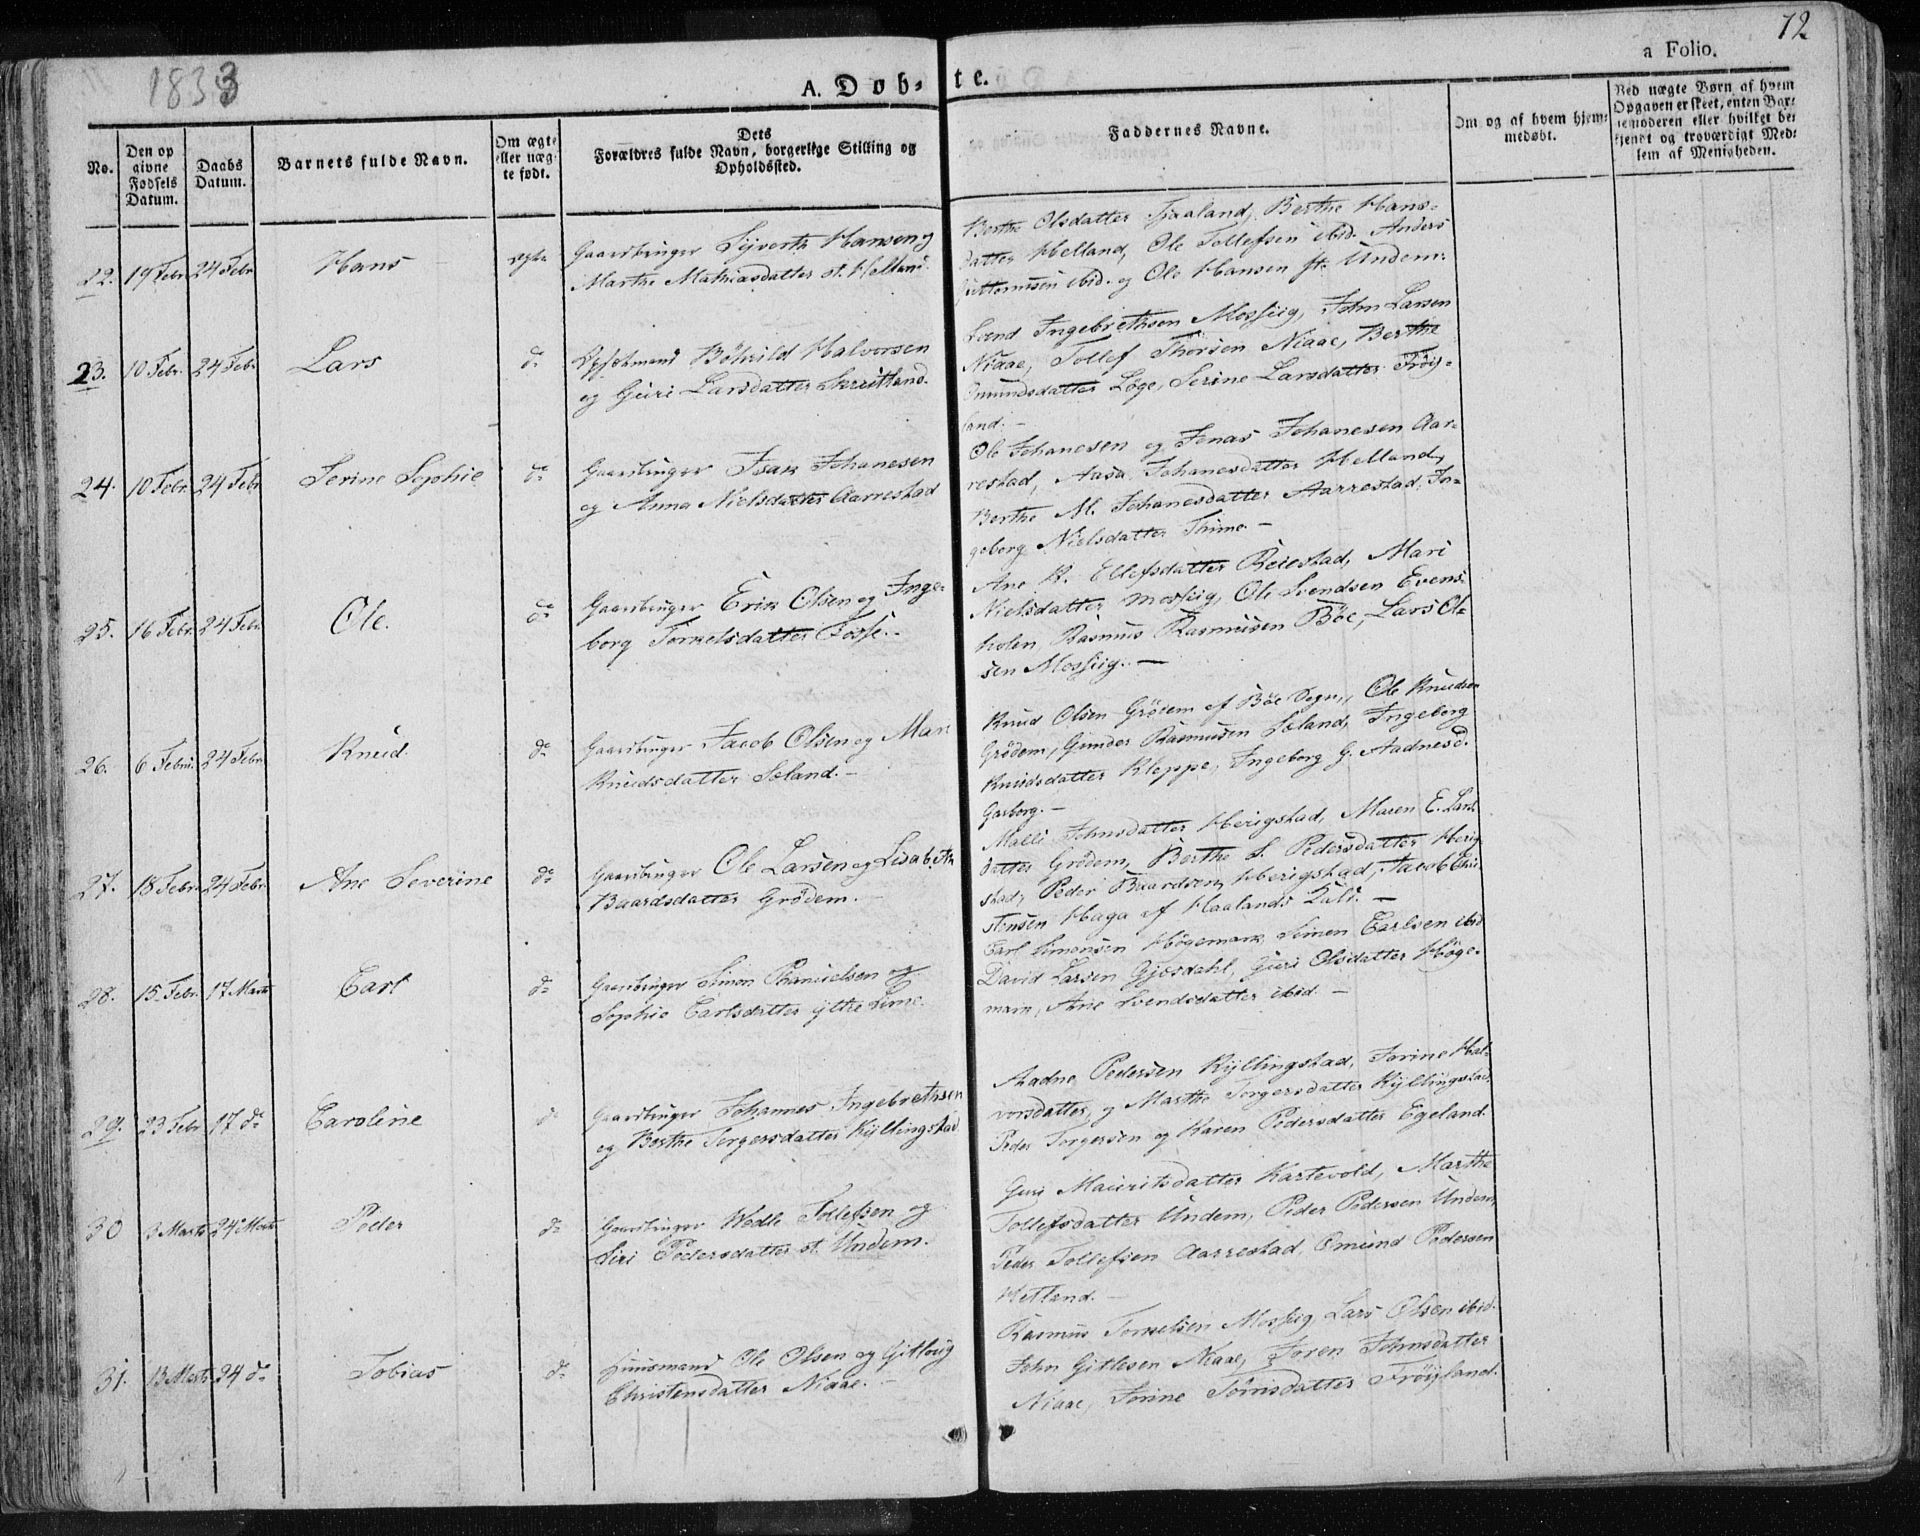 1833
A. Døb-
te.
12
a Folio.
No.
Den op
givne
Fødsels
Datum.
Daabs
Datum.
Barnets fulde Navn.
Om ægte
eller uæg-
te født.
Dets
Forældres fulde Navn, borgerlige Stilling og
Opholdssted.
Faddernes Navne.
Om og af hvem hjem-
medøbt.
Ved uægte Børn af hvem
Opgaven er skeet, enten Bar-
nemoderen eller hvilket be-
kjendt og troværdigt Med-
lem af Menigheden.
22. 19 Febr. 24 Febr. Hans ægte
Gaardbruger Syvert Hansen og
Marthe Mathiasdatter st. Helland.
Berthe Olsdatter Tjaaland, Berthe Hans-
datter Helland, Ole Tollefsen ibid. Anders
Guttormsen ibid. og Ole Hansen st. Undem.
23. 10 Febr. 24 Febr. Lars do
Bøhrild Halvorsen
og Guri Larsdatter Skrutland.
Lend Ingebrethsen Mossiig, John Larsen
Niaae, Tollef Thorsen Niaae, Berthe
Omundsdatter Løge, Serine Larsdatter Frøy-
land. -
24. 10 Febr. 24 Febr. Serine Sophie do
Gaardbruger Isak Johanesen
og Anna Nielsdatter Aarrestad
Ole Johanesen og Jonas Johanesen Aar-
restad, Aasa Johanesdatter Helland,
Berthe M. Johanesdatter Aarrestad, In-
geborg Nielsdatter Thime. -
25. 16 Febr. 24 Febr. Ole. do
Gaardbruger Erik Olsen og Inge-
borg Torkelsdatter Fosse. -
Ane H. Ellefsdatter Reiestad, Mari
Nielsdatter Mossiig, Ole Svendsen Evens-
holen, Rasmus Rasmusen Bøe, Lars Ol-
sen Mossiig. -
26. 6 Febr. 24 Febr. Knud do
Gaardbruger Jacob Olsen og Mari
Knudsdatter Sæland. -
Knud Olsen Grødem af Bøe Sogn, Ole Knudsen
Grødem, Gunder Rasmusen Sæland, Ingeborg
Knudsdatter Kleppe, Ingeborg G. Aadnesd.
Garborg. -
27. 18 Febr. 24 Febr. Ane Severine do
Gaardbruger Ole Larsen og Lisabeth
Baardsdatter Grødem. -
Malli Johnsdatter Herigstad, Maren E. Lars-
datter Grødem, Berthe S. Pedersdatter Herig-
stad, Peder Baardsen Herigstad, Jacob Chri-
stensen Haga af Haalands Kald. -
28. 15 Febr. 17 Marts Carl do
Gaardbruger Simon Thanielsen og
Sophie Carlsdatter ytre Lime.
Carl Simonsen Høgemark, Simen Carlsen ibid
David Larsen Gjæsdahl, Guri Olsdatter Høge-
mark, Ane Svendsdatter ibid. -
29. 23 Febr 17 do Caroline do
Gaardbruger Johannes Ingebrethsen
og Berthe Torgersdatter Kyllingstad.
Aadne Pedersen Kyllingstad, Torine Hal-
vorsdatter, og Marthe Torgersdatter Kyllingstad,
Peder Torgersen og Karen Pedersdatter Egeland.
30 3 Marts 24 Marts Peder do
Gaardbruger Wedle Tollefsen og
Siri Pedersdatter st. Undem.
Guri Mauritsdatter Kartevold, Marthe
Tollefsdatter Undem, Peder Pedersen Undem,
Peder Tollefsen Aarrestad, Omund Pedersen
Hetland. -
31. 13 Marts 24 do Tobias do
Huusmand Ole Olsen og Gitlaug
Christensdatter Niaae. -
Rasmus Torkelsen Mossiig, Lars Olsen ibid.
John Gitlesen Niaae, Joren Johnsdatter
Niaae, Torine Tørrisdatter Frøyland.